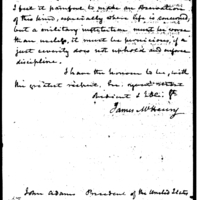 I feel it painful to make an observation
of this kind, especially where life is concerned,
but a military institution must be worse
than useless, it must be pernicious, if a
just severity does not uphold and enforce
discipline.
I have the honour to be, with
the greatest respect, Sir, your most
Obedient & Hble St
James McHenry
John Adams President of the United States